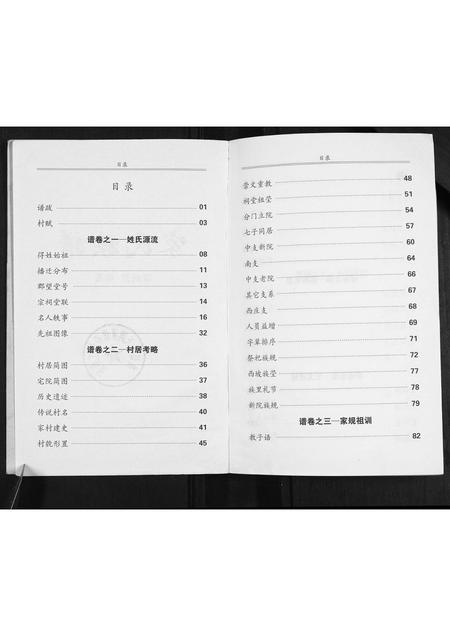 目录
目 录
谱跋 01
村赋 03
谱卷之一—姓氏源流
得姓始祖 08
播迁分布 11
郡望堂号 13
宗祠堂联 14
名人轶事 16
先祖图像 32
谱卷之二—村居考略
村居简图 36
宅院简图 37
历史遗迹 38
传说村名 40
家村建史 41
村貌形置 45
目录
崇文重教 48
祠堂祖茔 51
分门立院 54
七子同居 57
中支新院 60
南支 64
中支老院 66
其它支系 67
西庄支 68
人员益增 69
字辈排序 71
祭祀族规 72
西坡族茔 77
族里礼节 78
新院族规 79
谱卷之三—家规祖训
教子语 82